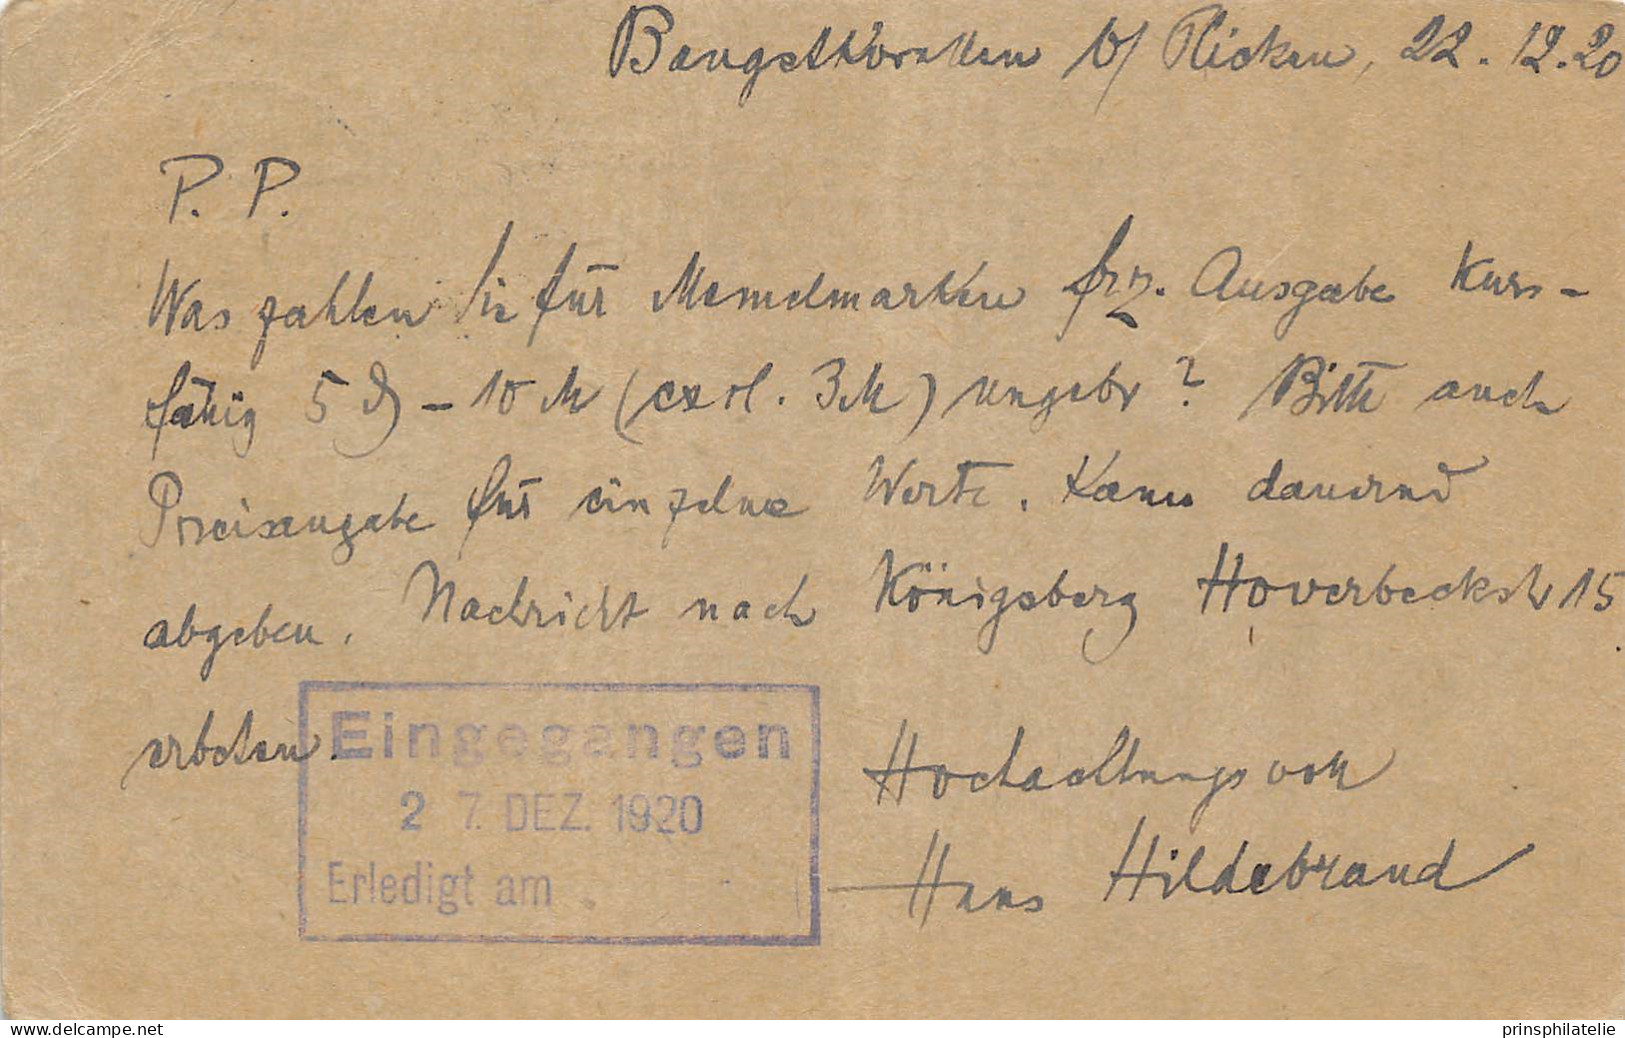 Baugstkorallen b/ Plicken, 22.12.20
P. P.
Was zahlen Sie für Memelmarken frz. Ausgabe Kurs-
fähig 5 ₰ – 10 M (exkl. 3M) ungebr? Bitte auch
Preisangabe für einzelne Werte. Kann dauernd
abgeben. Nachricht nach Königsberg Hoverbeckstr 15
erboten.
Eingegangen
27. DEZ. 1920
Erledigt am
Hochachtungsvoll
Hans Hildebrand
www.delcampe.net
prinsphilatelie